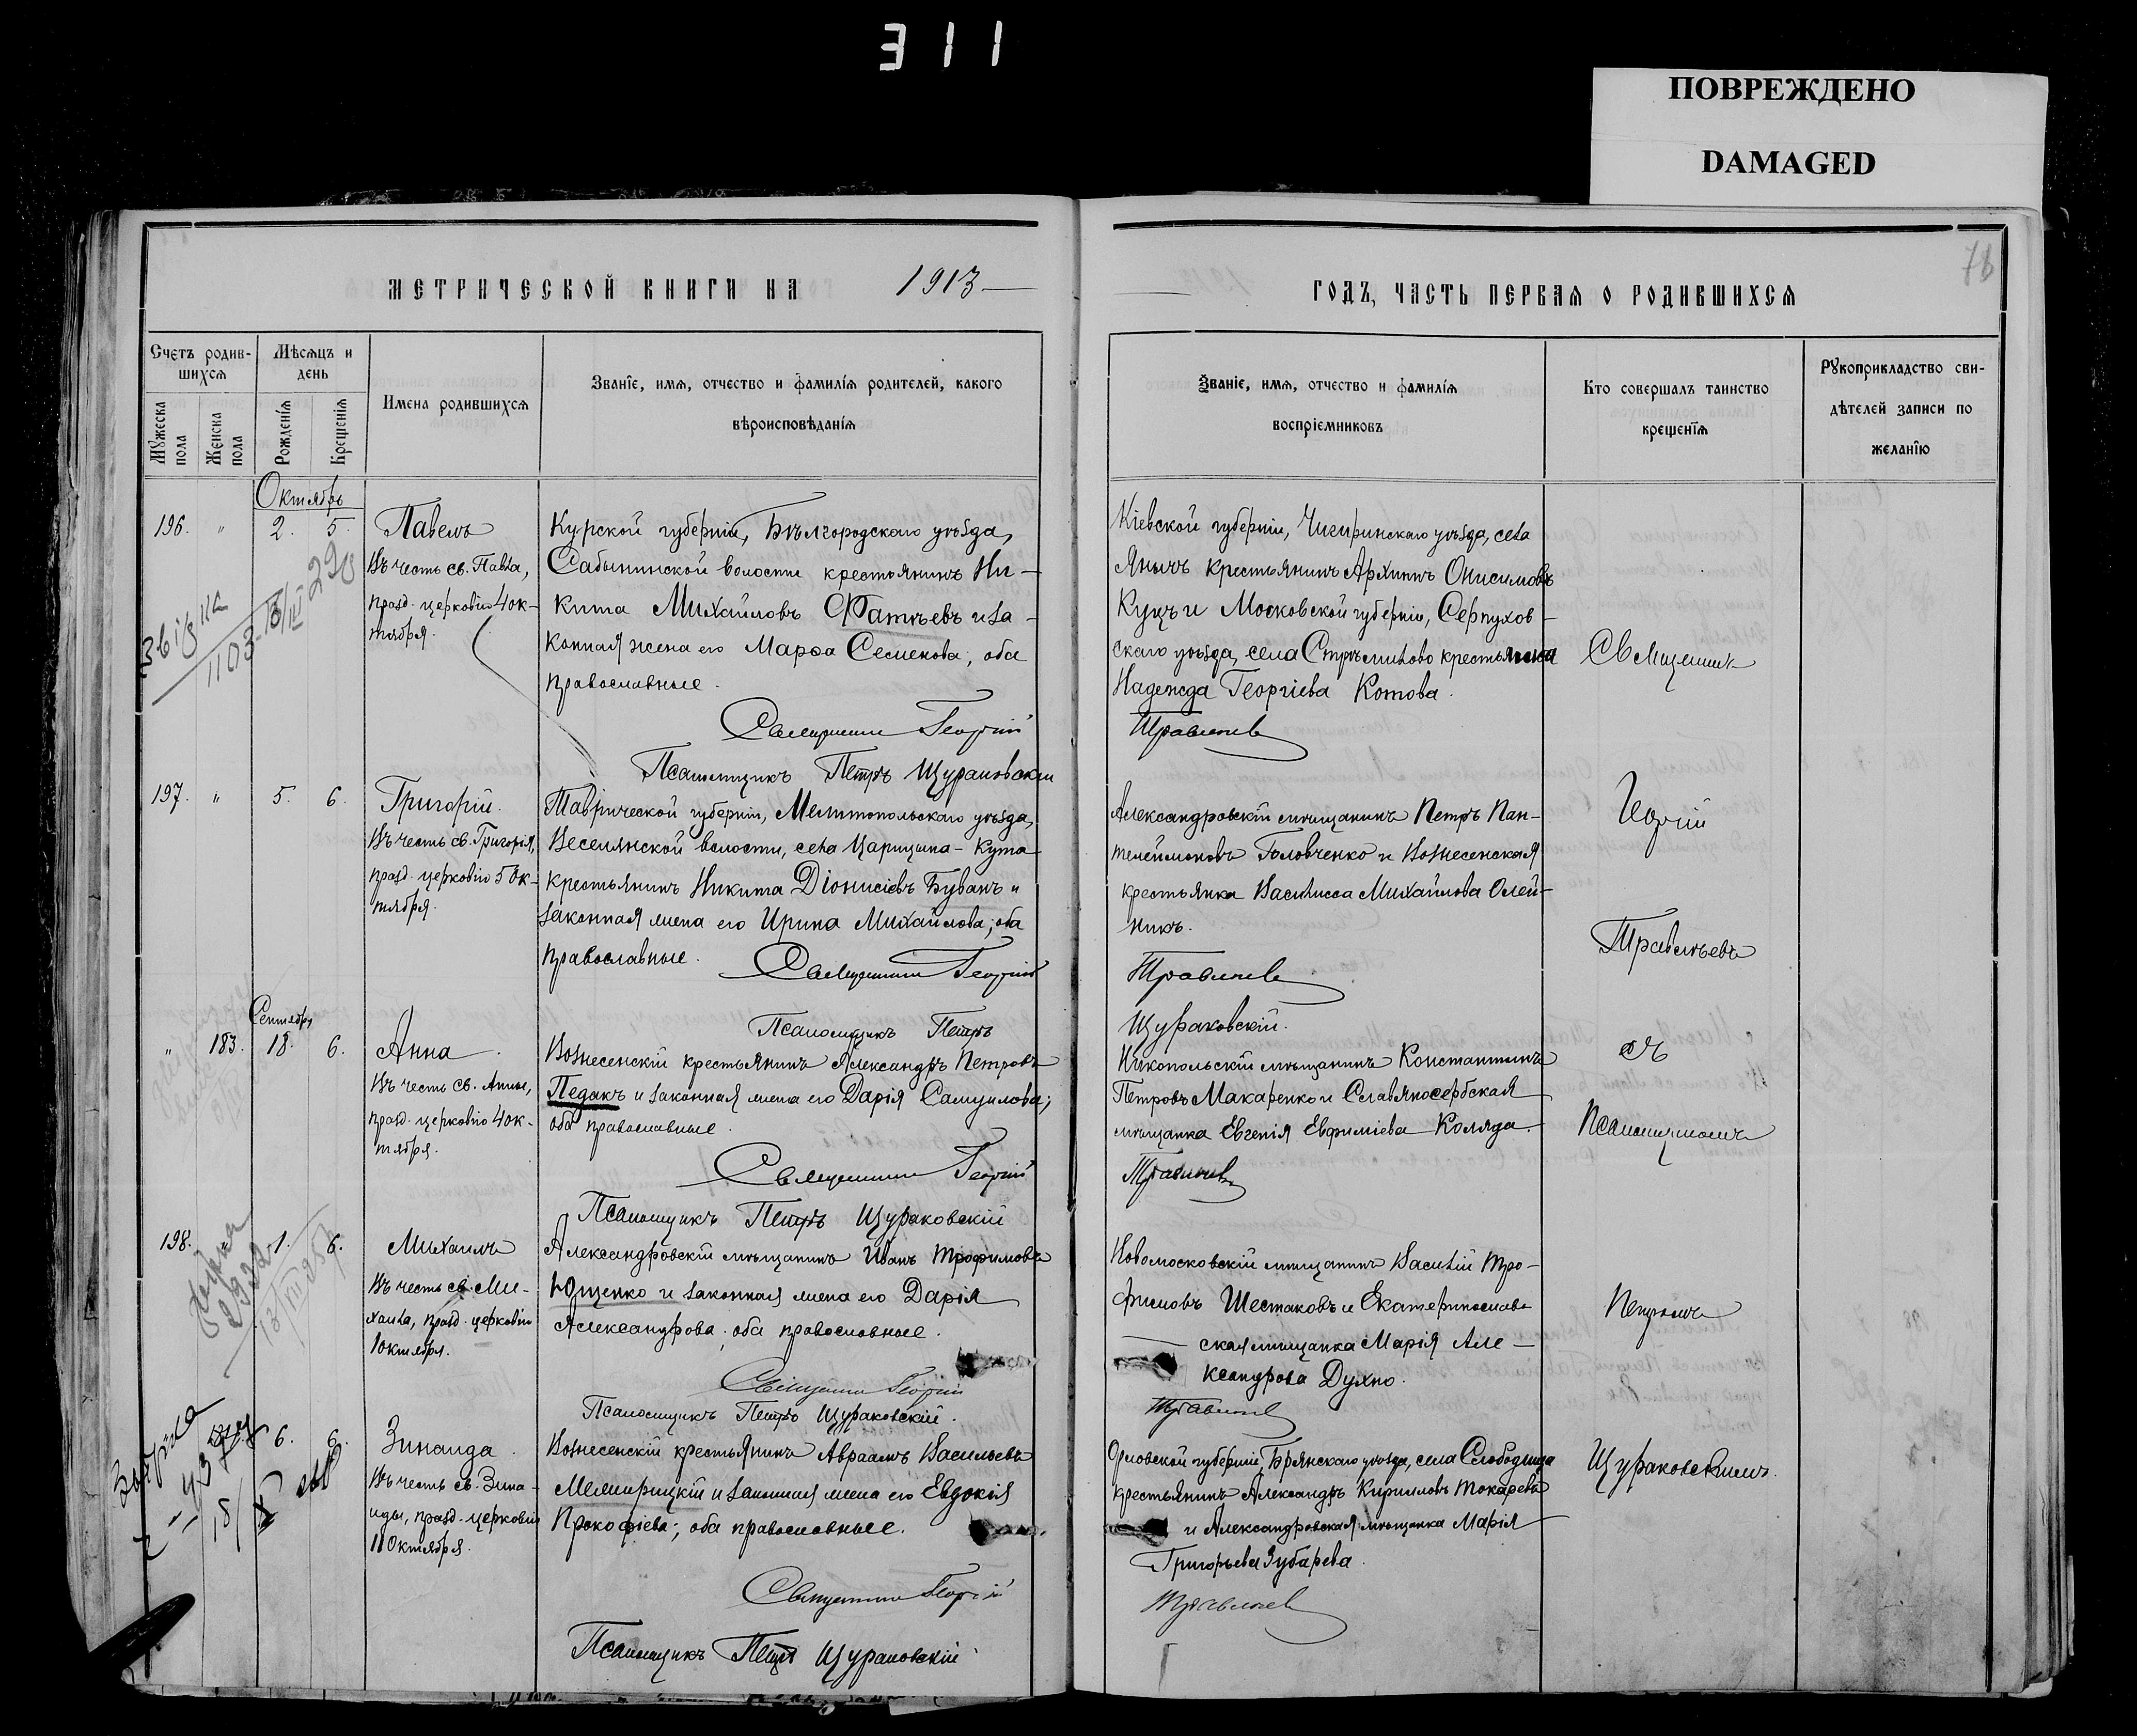 311
ПОВРЕЖДЕНО
DAMAGED
МЕТРИЧЕСКОЙ КНИГИ НА 1913
Счетъ родившихся
Мѣсяцъ и день
Имена родившихся
Званіе, имя, отчество и фамилія родителей, какого
вѣроисповѣданія
Мужеска пола
Женска пола
Рожденія
Крещенія
Октябрь
196. " 2. 5.
Павелъ
Въ честь св. Павла,
празд. церковію 4 ок-
тября.
Курской губерніи, Бѣлгородскаго уѣзда,
Сабынинской волости крестьянинъ Ни-
кита Михайловъ Фатѣевъ и за-
конная жена его Марѳа Семенова; оба
православные.
Священникъ Георгій
Псаломщикъ Петръ Щураковскій
197. " 5. 6.
Григорій.
Въ честь св. Григорія,
празд. церковію 5 Ок-
тября.
Таврической губерніи, Мелитопольскаго уѣзда,
Веселянской волости, села Царицына-Кута
крестьянинъ Никита Діонисіевъ Буванъ и
законная жена его Ирина Михайлова; оба
православные.
Священникъ Георгій
Псаломщикъ Петръ
Сентября
" 183. 18. 6.
Анна.
Въ честь св. Анны,
празд. церковію 4 ок-
тября.
Вознесенскій крестьянинъ Александръ Петровъ
Педакъ и законная жена его Дарія Самуилова;
оба православные.
Священникъ Георгій
Псаломщикъ Петръ Щураковскій
198. " 1. 6.
Михаилъ
Въ честь св. Ми-
хаила, празд. церковію
1 Октября.
Александровскій мѣщанинъ Иванъ Трофимовъ
Ющенко и законная жена его Дарія
Александрова; оба православные.
Священникъ Георгій
Псаломщикъ Петръ Щураковскій.
6. 6.
Зинаида.
Въ честь св. Зина-
иды, празд. церковію
11 Октября.
Вознесенскій крестьянинъ Авраамъ Васильевъ
и законная жена его Евдокія
Прокофіева; оба православные.
Священникъ Георгій
Псаломщикъ Петръ Щураковскій
ГОДЪ, ЧАСТЬ ПЕРВАЯ О РОДИВШИХСЯ
Званіе, имя, отчество и фамилія
воспріемниковъ
Кто совершалъ таинство
крещенія
Рукоприкладство сви-
дѣтелей записи по
желанію
Кіевской губерніи, Чигиринскаго уѣзда, села
Янычъ крестьянинъ Архипъ Онисимовъ
Куцъ и Московской губерніи, Серпухов-
скаго уѣзда, села Стремилово крестьянка
Надежда Георгіева Котова.
Травлѣевъ
Александровскій мѣщанинъ Петръ Пан-
телеймоновъ Головченко и Вознесенская
крестьянка Василисса Михайлова Олей-
никъ.
Травлѣевъ
Щураковскій.
Никопольскій мѣщанинъ Константинъ
Петровъ Макаренко и Славяносербская
мѣщанка Евгенія Евфиміева Коляда.
Травлѣевъ
Новомосковскій мѣщанинъ Василій Тро-
фимовъ Шестаковъ и Екатеринослав-
ская мѣщанка Марія Але-
ксандрова Духно.
Травлѣевъ
Орловской губерніи, Брянскаго уѣзда, села Слободища
крестьянинъ Александръ Кирилловъ Токаревъ
и Александровская мѣщанка Марія
Григорьева Зубарева.
Травлѣевъ
Священникъ
Георгій
Травлѣевъ
съ
Псаломщикомъ
Петромъ
Щураковскимъ.